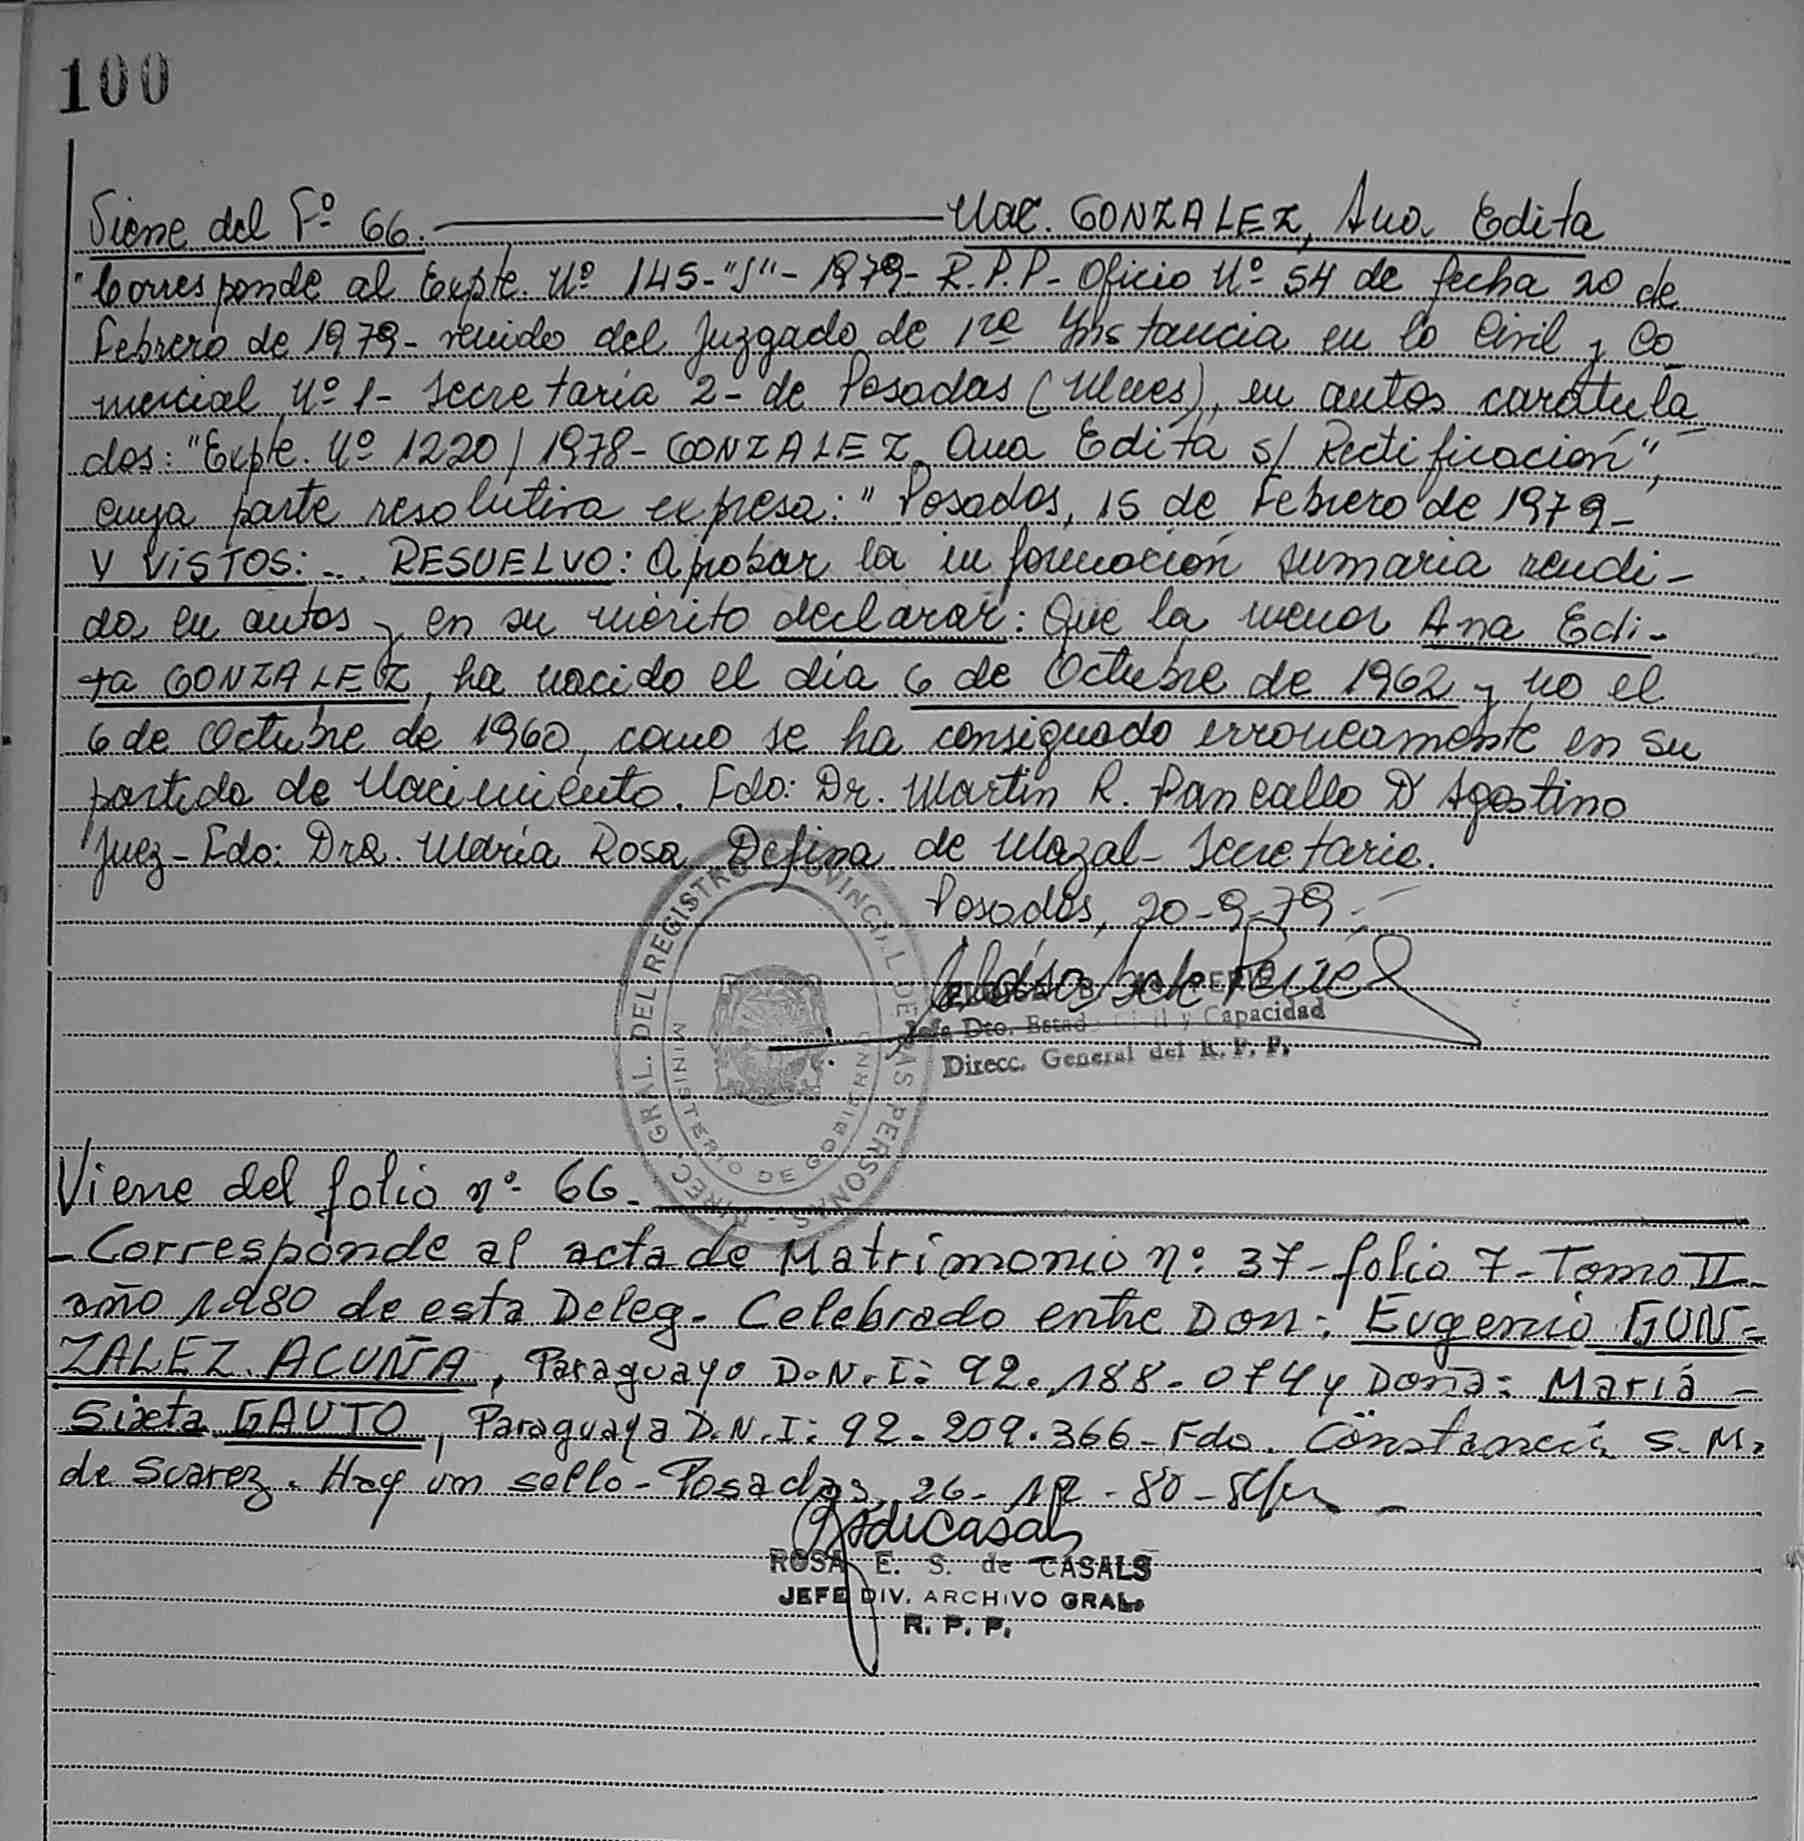 100
Viene del Fº 66. Nac. GONZALEZ, Ana Edita
"Corresponde al Expte. Nº 145-"J"-1979- R.P.P- Oficio Nº 54 de fecha 20 de
Febrero de 1979- venido del Juzgado de 1ra Instancia en lo Civil y Co
mercial Nº 1- Secretaría 2- de Posadas (Mnes), en autos caratula
dos: "Expte. Nº 1220/1978- GONZALEZ Ana Edita s/ Rectificación",
cuya parte resolutiva expresa: "Posadas, 15 de Febrero de 1979-
Y VISTOS: ... RESUELVO: Aprobar la información sumaria rendi-
da en autos y en su mérito declarar: Que la menor Ana Edi-
ta GONZALEZ, ha nacido el día 6 de Octubre de 1962 y no el
6 de Octubre de 1960, como se ha consignado erroneamente en su
partida de Nacimiento. Fdo: Dr. Martín R. Pancallo D'Agostino
Juez- Fdo: Dra. María Rosa Defina de Mazal- Secretaria.
Posadas, 20-9-79.-
Jefe Dto. Estado Civil y Capacidad
Direcc. General del R. P. P.
DIREC. GRAL. DEL REGISTRO PROVINCIAL DE LAS PERSONAS -
MINISTERIO DE GOBIERNO
Viene del folio nº 66.
-Corresponde al acta de Matrimonio nº: 37- folio 7- Tomo II-
año 1980 de esta Deleg- Celebrado entre Don: Eugenio GON-
ZALEZ ACUÑA, Paraguayo D.N.I: 92.188.074 y Doña: María -
Sixta GAUTO, Paraguaya D.N.I: 92.209.366- Fdo. Constancia S. M.
de Suarez. Hay un sello- Posadas, 26-12-80-
ROSA E. S. de CASALS
JEFE DIV. ARCHIVO GRAL.
R. P. P.